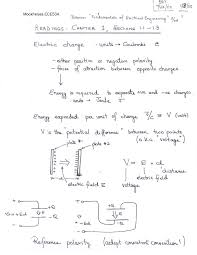 Mockherjea ECE53A
"Fundamentals of Electrical Engineering"
READINGS: CHAPTER 1, SECTIONS 1.1 - 1.3
Electric charge - units → Coulombs C
- either positive or negative polarity
- force of attraction between opposite charges
→ Energy is required to separate +ve and -ve charges
- units → Joule J
Energy expended per unit of charge J/C ≡ V (volt)
V is the potential difference between two points
(a.k.a. 'voltage')
V = E • d
distance
electric field
electric field E
+Q
-Q
Reference polarity (adopt consistent convention!)